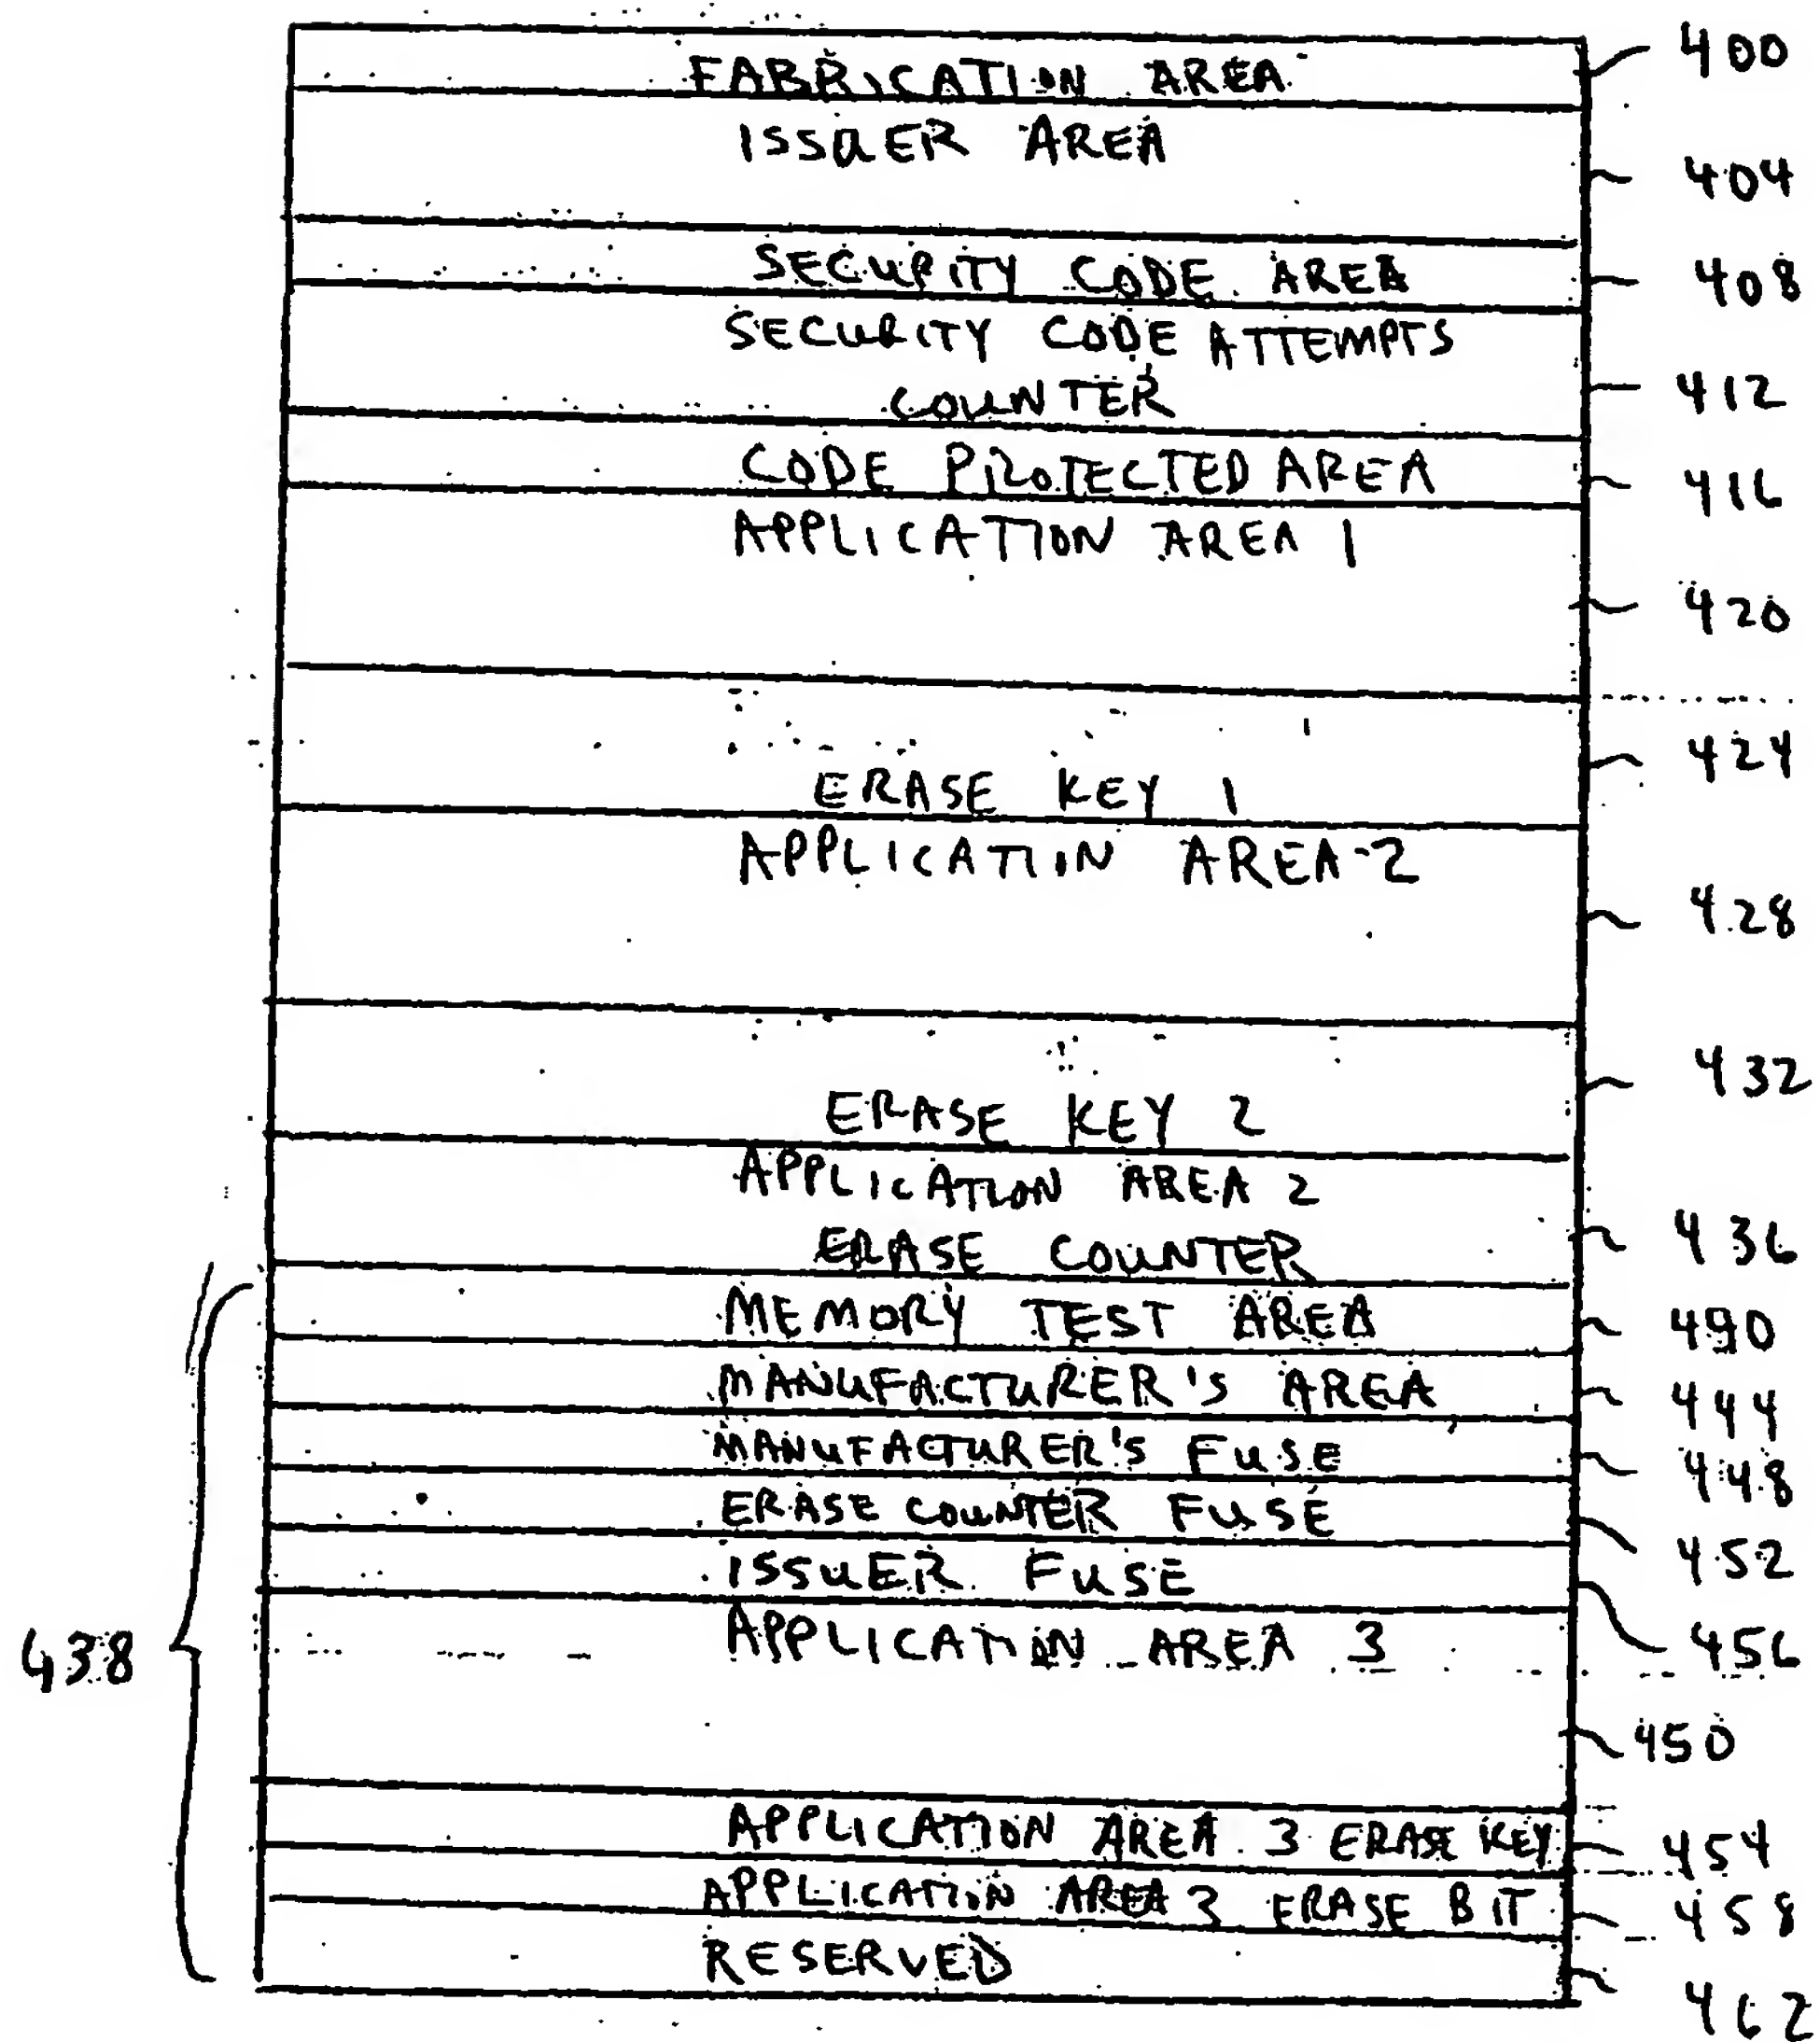 FABRICATION AREA 400
ISSUER AREA
404
SECURITY CODE AREA 408
SECURITY CODE ATTEMPTS
COUNTER 412
CODE PROTECTED AREA 416
APPLICATION AREA 1
420
424
ERASE KEY 1
APPLICATION AREA 2
428
432
ERASE KEY 2
APPLICATION AREA 2
ERASE COUNTER 436
MEMORY TEST AREA
MANUFACTURER'S AREA 444
MANUFACTURER'S FUSE 448
ERASE COUNTER FUSE 452
ISSUER FUSE 456
APPLICATION AREA 3
438
450
APPLICATION AREA 3 ERASE KEY 454
APPLICATION AREA 3 ERASE BIT 458
RESERVED 462